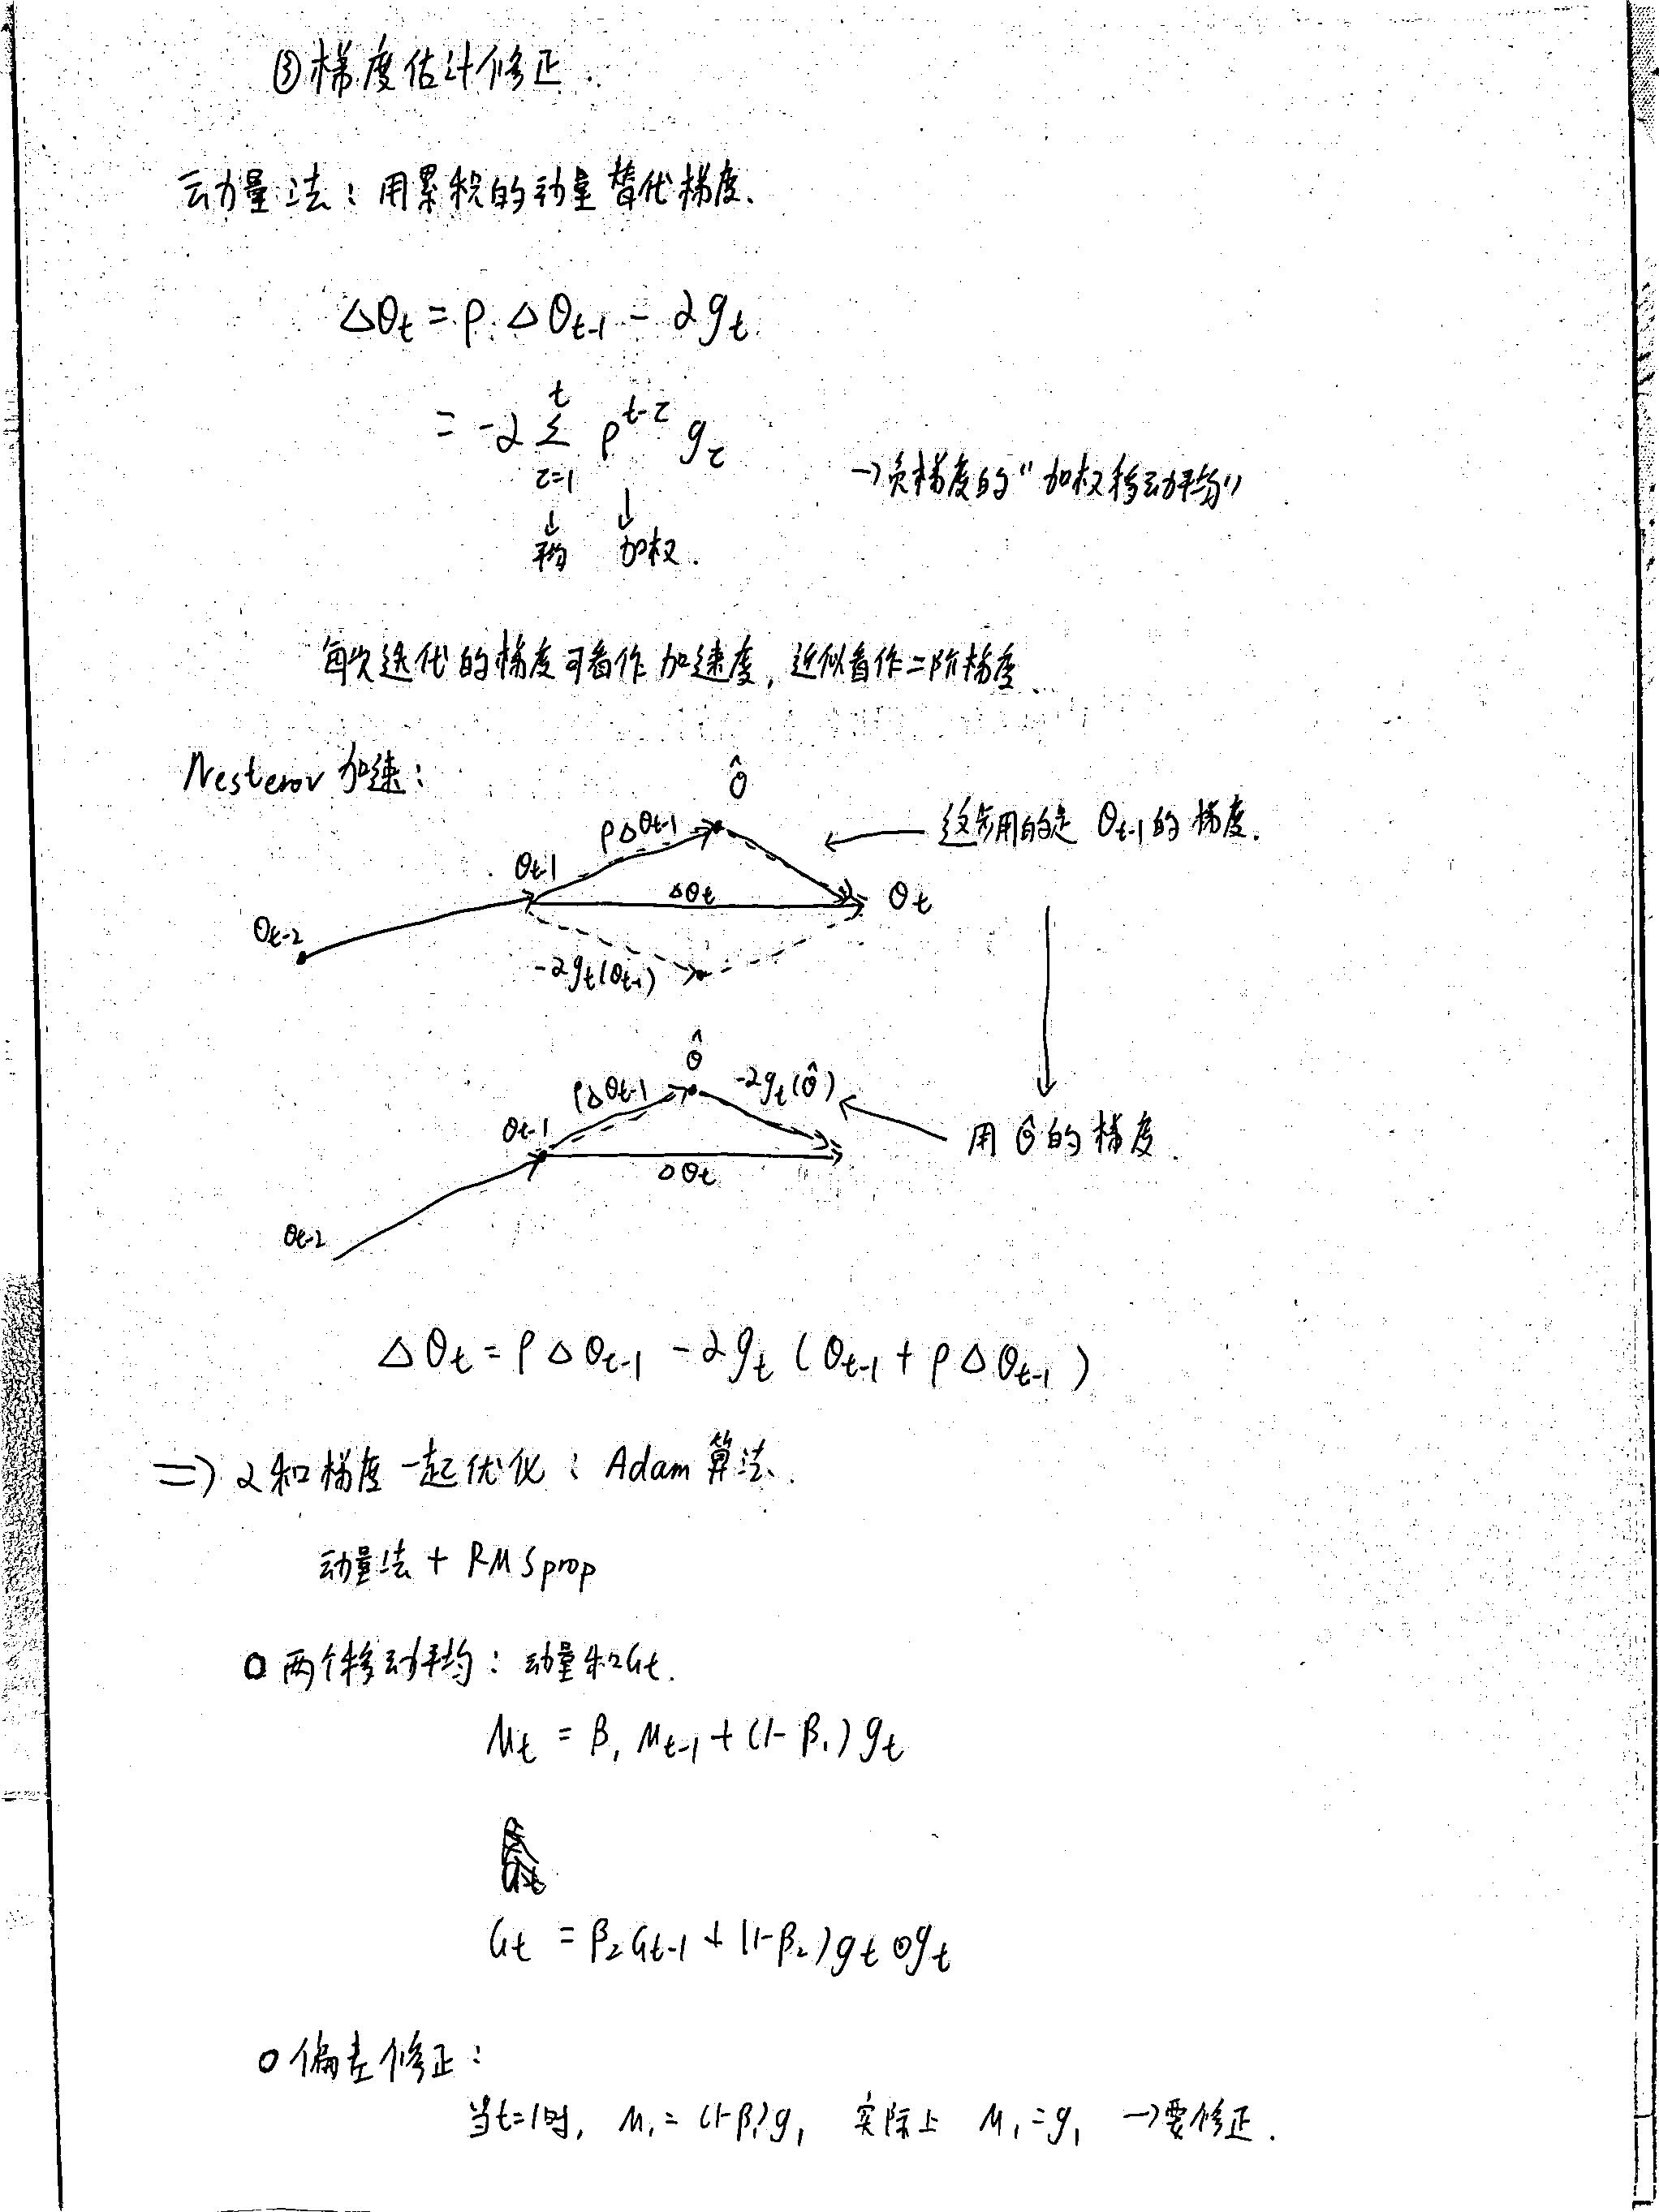 ③梯度估计修正.
动量法：用累积的动量替代梯度.
Δθt = ρ·Δθt-1 - αgt
= -α Σ(τ=1→t) ρ^(t-τ) gτ →负梯度的"加权移动平均"
↓平均 ↓加权.
每次迭代的梯度可看作加速度, 近似看作二阶梯度.
Nesterov 加速：
θ̂
ρΔθt-1 ← 这步用的是 θt-1的梯度.
θt-1
Δθt θt
θt-2
-αgt(θt-1)
θ̂
ρΔθt-1 -αgt(θ̂)
θt-1 ← 用θ̂的梯度.
Δθt
θt-2
Δθt = ρΔθt-1 - αgt(θt-1 + ρΔθt-1)
⇒ α和梯度一起优化：Adam 算法.
动量法 + RMSprop
o 两个移动平均：动量和Gt.
Mt = β₁Mt-1 + (1-β₁)gt
Gt = β₂Gt-1 + (1-β₂)gt⊙gt
o 偏差修正：
当t=1时, M₁ = (1-β₁)g₁ 实际上 M₁=g₁ →要修正.